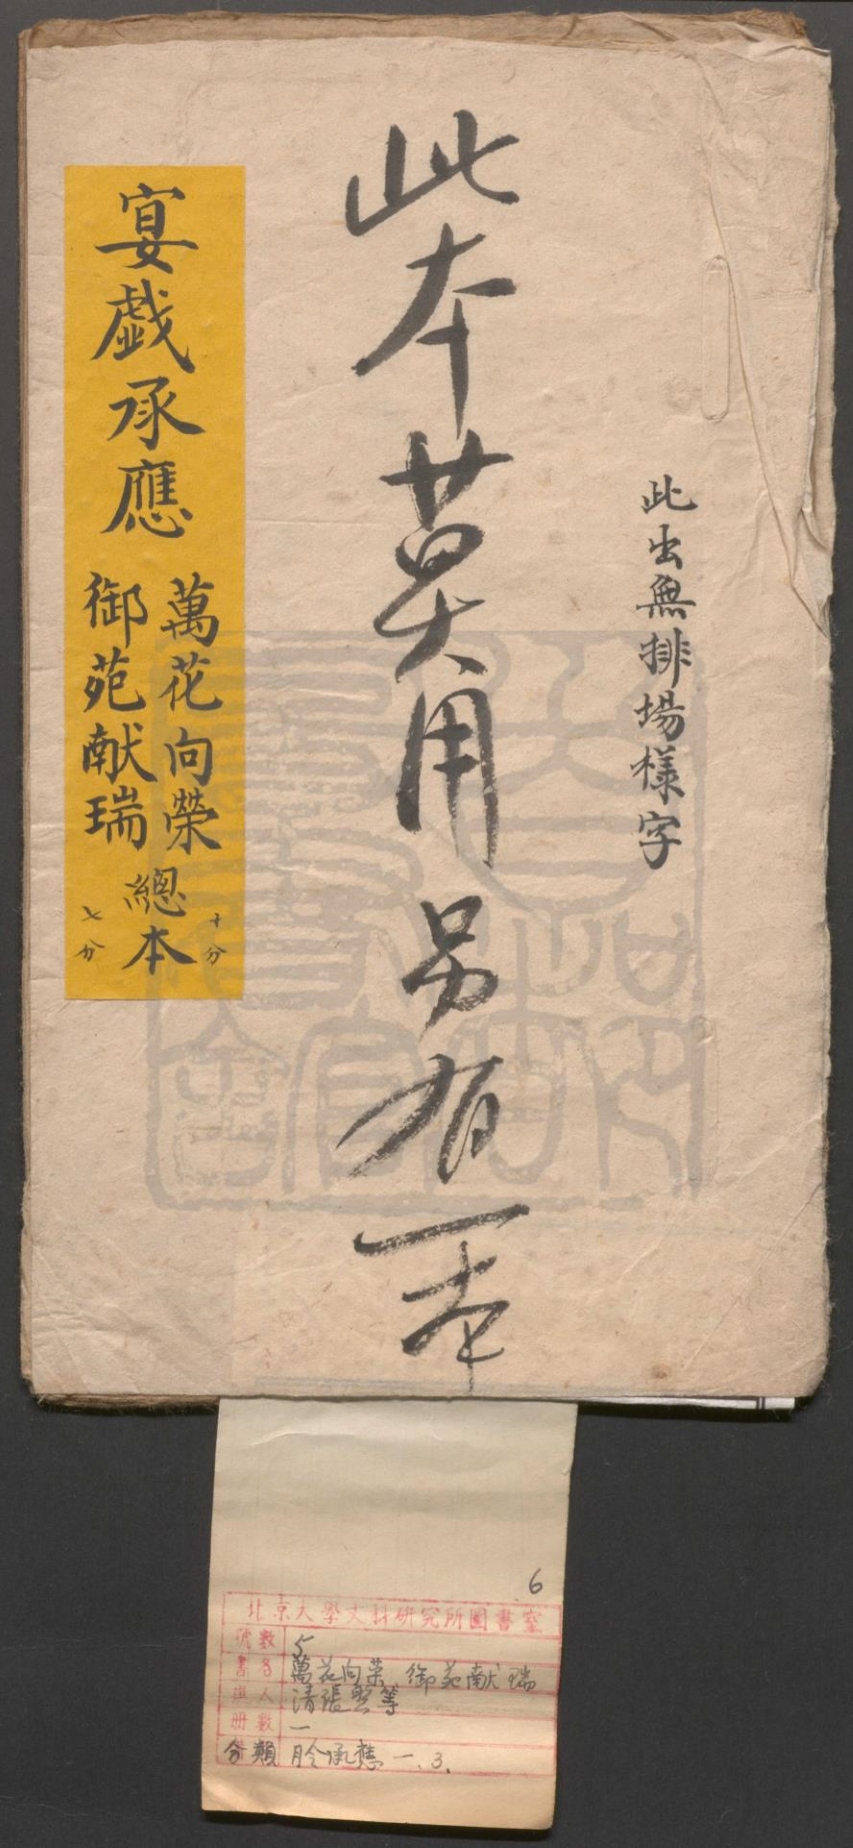 此出無排場樣字
此本莫用另有一本
宴戯承應
萬花向榮
御苑献瑞
總本
十分
七分
6
北京大學文科研究所圖書室
號數 5
書名 萬花向荣 御苑献瑞
人 清張照等
冊數 一
分類 月令承應 一.3.